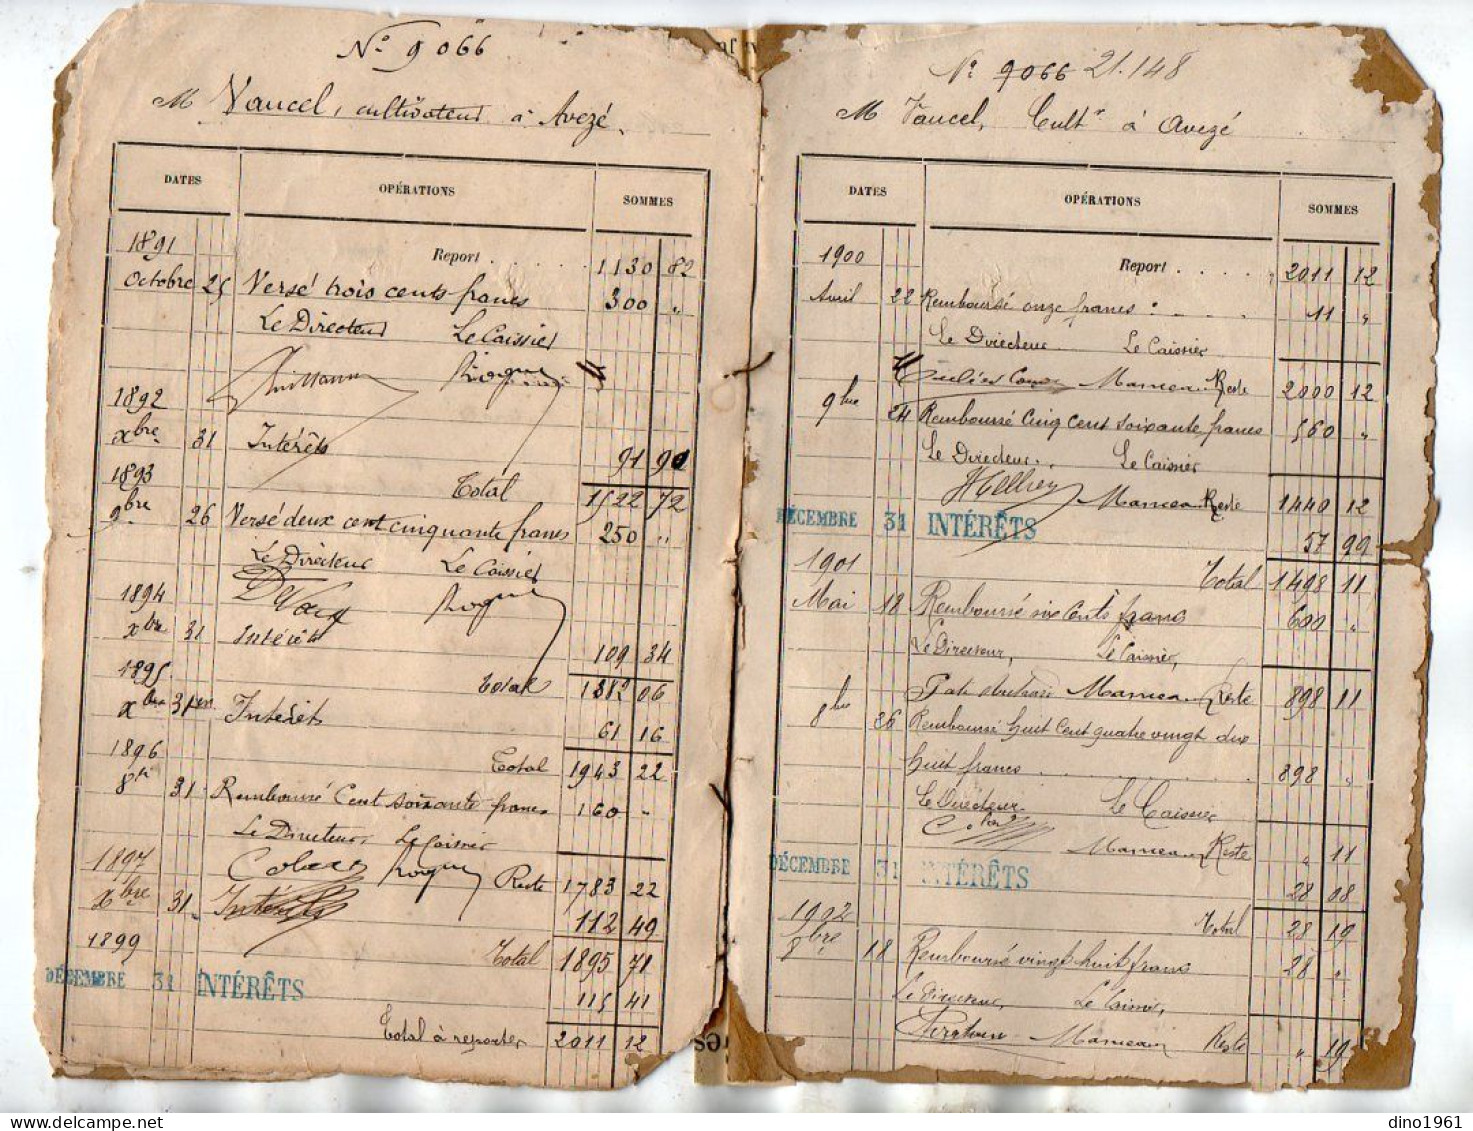 N° 9066
M Vaucel, cultivateur à Avezé
DATES OPÉRATIONS SOMMES
1891 Report . . . . . 1130 82
Octobre 25 Versé trois cents francs 300 "
Le Directeur Le Caissier
1892
Xbre 31 Intérêts 91 90
1893 Total 1522 72
9bre 26 Versé deux cent cinquante francs 250 "
Le Directeur Le Caissier
1894
Xbre 31 Intérêts 109 34
1895 Total 1882 06
Xbre 31 Intérêts 61 16
1896 Total 1943 22
8bre 31 Remboursé Cent soixante francs 160 "
Le Directeur, Le Caissier
1897 Reste 1783 22
Xbre 31 Intérêts 112 49
1899 Total 1895 71
DÉCEMBRE 31 INTÉRÊTS 115 41
Total à reporter 2011 12
N° 9066 21.148
M Vaucel, Cultr à Avezé
DATES OPÉRATIONS SOMMES
1900 Report . . . . 2011 12
Avril 22 Remboursé onze francs : 11 "
Le Directeur Le Caissier
Manceau Reste 2000 12
9bre 24 Remboursé Cinq cent soixante francs 560 "
Le Directeur. Le Caissier
Manceau Reste 1440 12
DÉCEMBRE 31 INTÉRÊTS 57 99
1901 Total 1498 11
Mai 18 Remboursé six Cents francs 600 "
Le Directeur, Le Caissier,
Manceau Reste 898 11
8bre 26 Remboursé huit Cent quatre vingt dix
huit francs . . . . . . . . 898 "
Le Directeur Le Caissier
Manceau Reste " 11
DÉCEMBRE 31 INTÉRÊTS 28 08
1902 Total 28 19
8bre 18 Remboursé vingt huit francs 28 "
Le Directeur, Le Caissier,
Manceau Reste " 19
dino1961